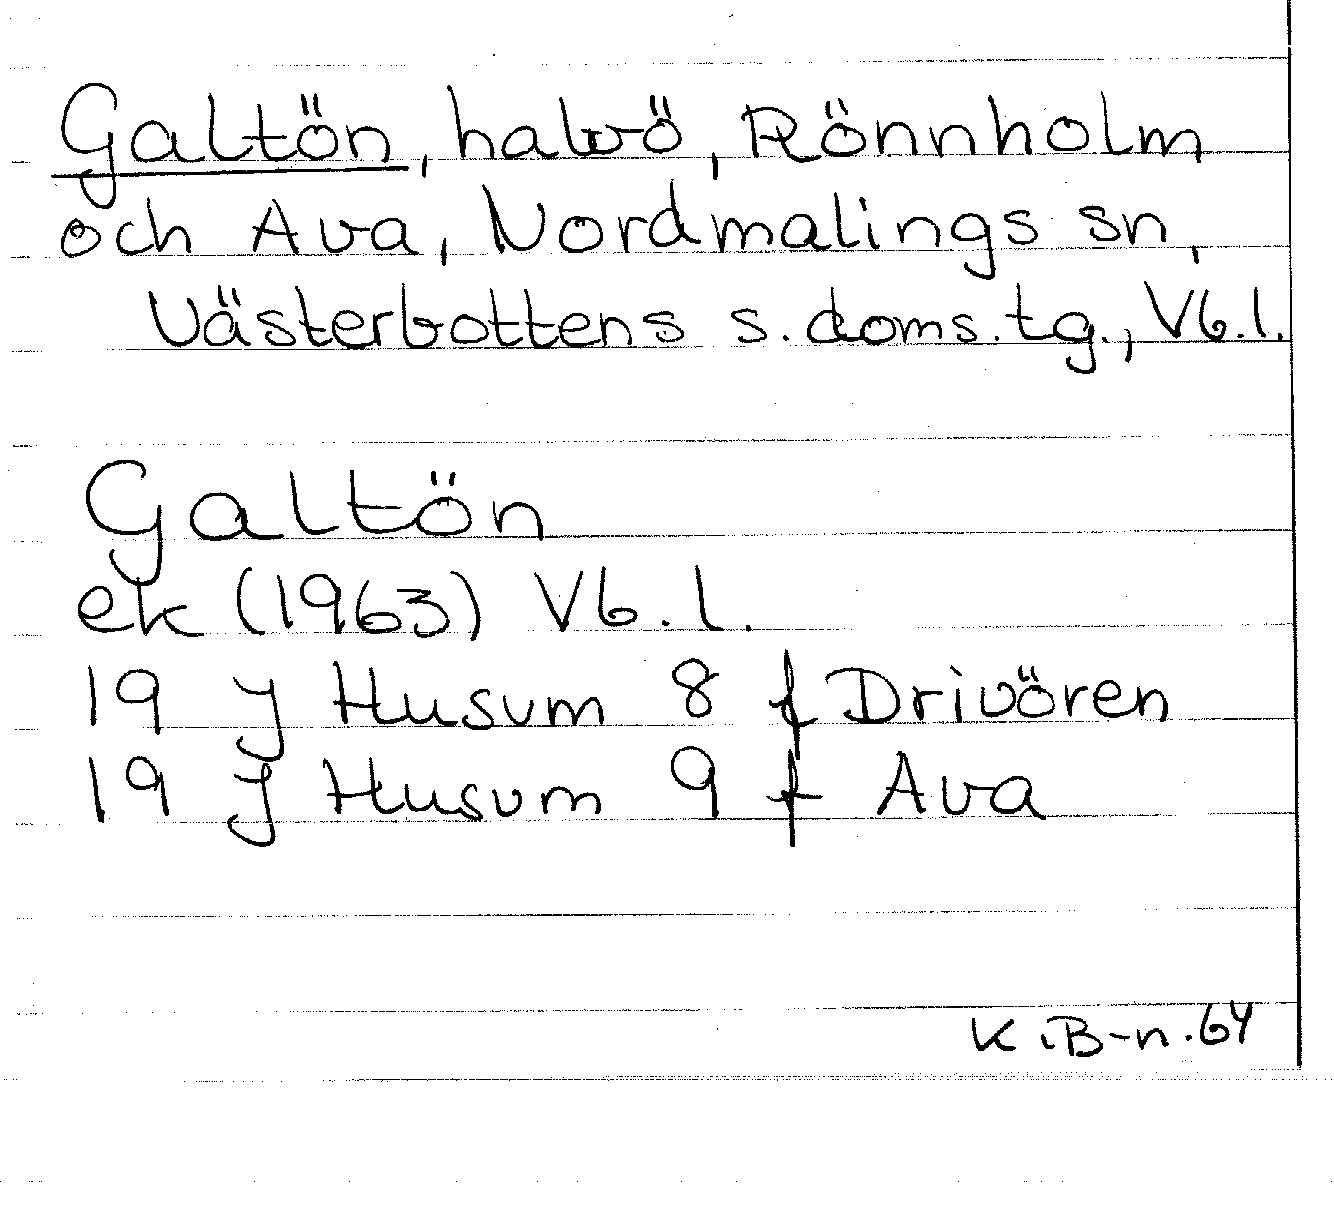 Galtön, halvö, Rönnholm
och Ava, Nordmalings sn,
Västerbottens s. doms. tg., Vb. l.
Galtön
ek (1963) Vb. l.
19 J Husum 8 f Drivören
19 J Husum 9 f Ava
K. B-n. 64